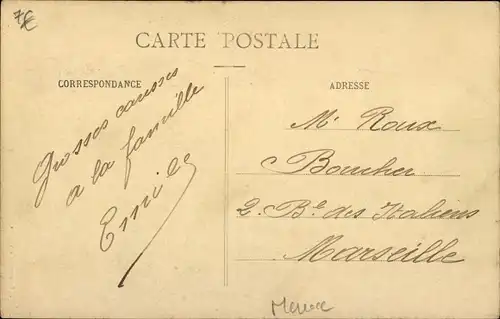 7€
CARTE POSTALE
CORRESPONDANCE
Grosses causses
a la famille
Emile
ADRESSE
Mr Roux
Boucher
2. Bd. des Italiens
Marseille